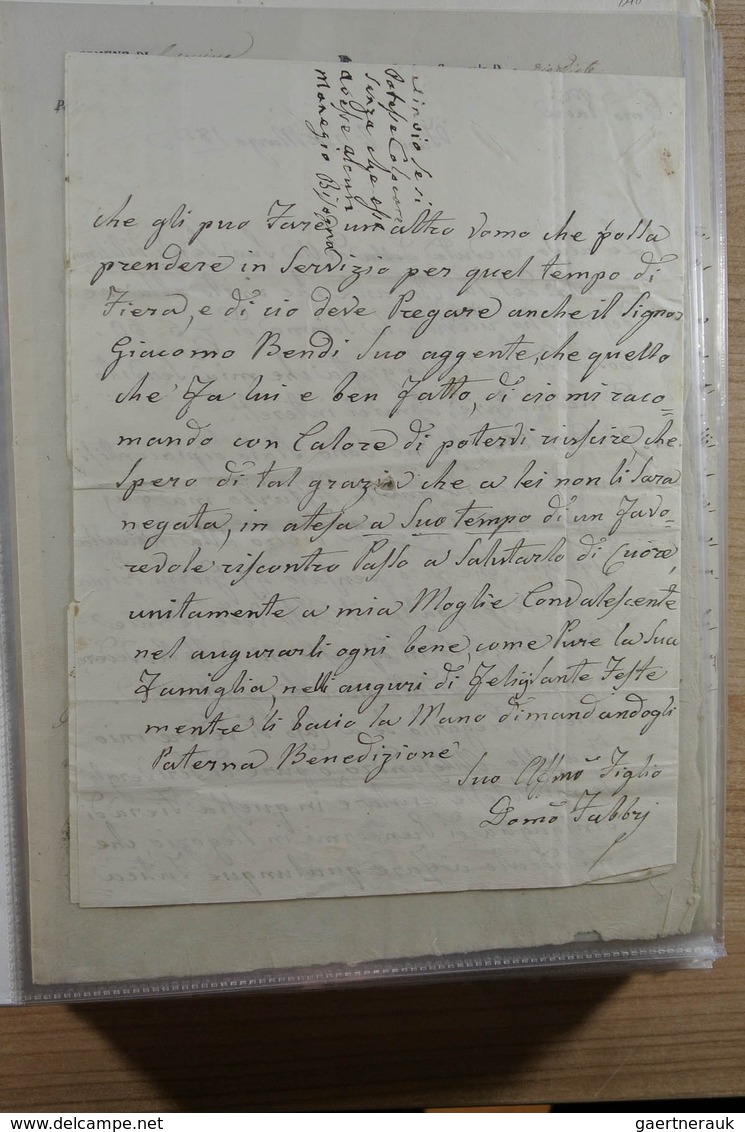 che gli puo Fare un altro Vomo che possa
prendere in Servizio per quel tempo di
Fiera, e di cio deve Pregare anche il Signor
Giacomo Bendi Suo aggente, che quello
che Fa lui e ben Fatto, di cio mi raco=
mando con Calore di poterdi riuscire, che
Spero di tal grazia che a lei non li Sara
negata, in atesa a Suo tempo di un Favo=
revole riscontro Passo a Salutarlo di Cuore,
unitamente a mia Moglie Convalescente
nel augurarli ogni bene, come Pure la Sua
Famiglia, nelli auguri di Feste
mentre li bacio la Mano dimandandogli
Paterna Benedizione
Suo Affmo Figlio
Domo Fabbrj
se si
Potesse
Senza che
avesse alcun
Manegio Bisogna
gaertnerauk